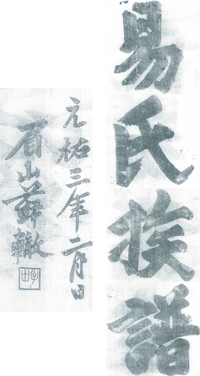 易氏族譜
元祐三年二月日
眉山蘇轍